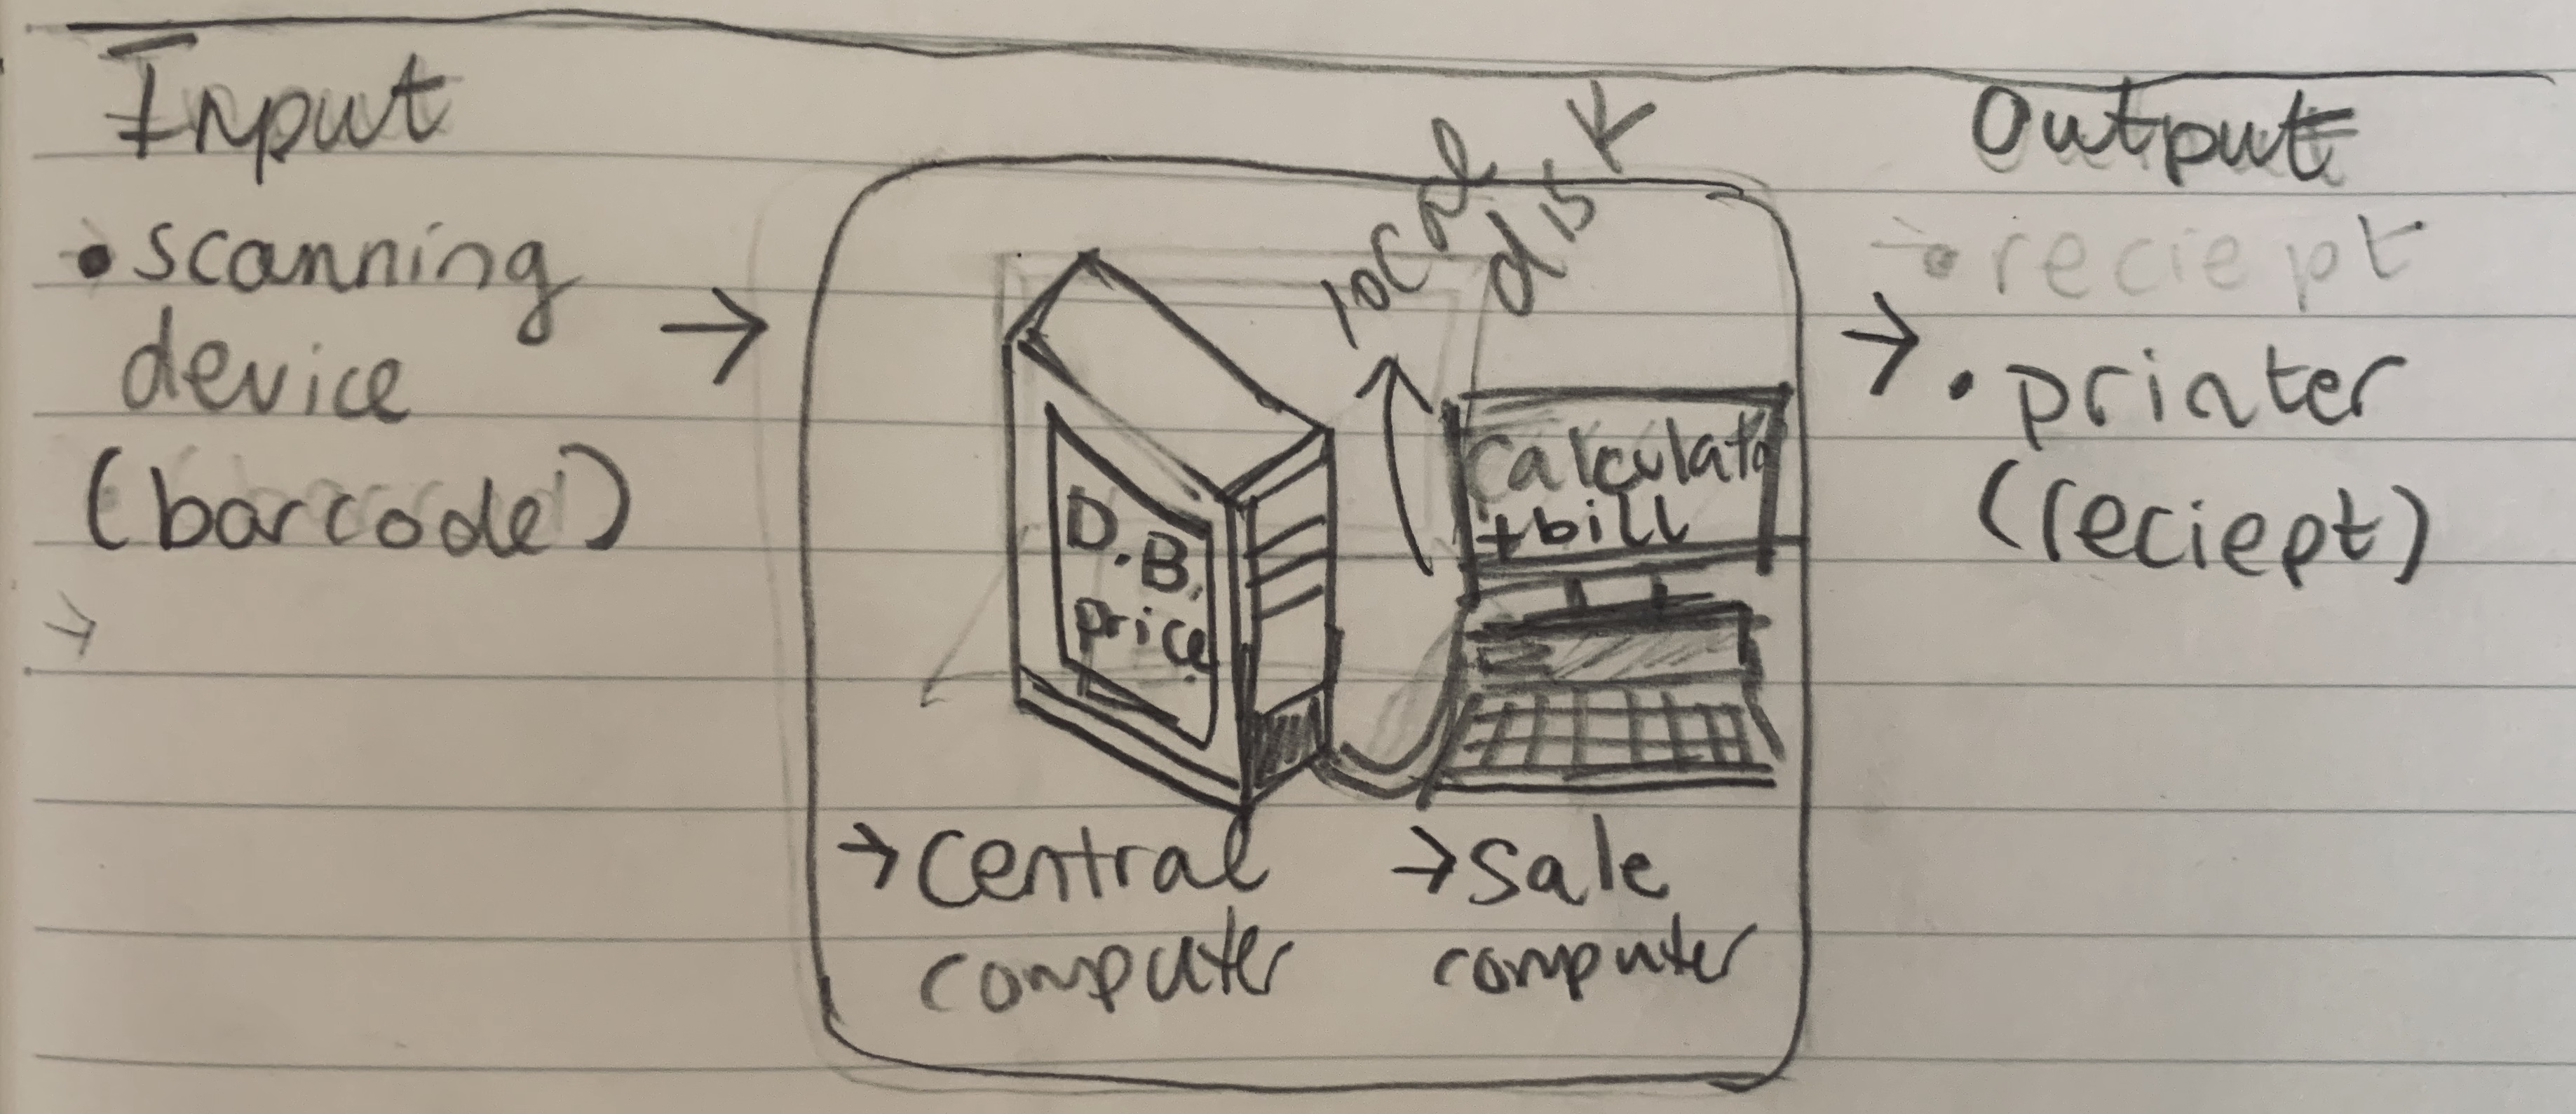 Input
• scanning
device
(barcode)
→
→
local
disk
D.B.
price
calculate
+ bill
→ Central
computer
→ sale
computer
Output
→ • reciept
→
• printer
(reciept)